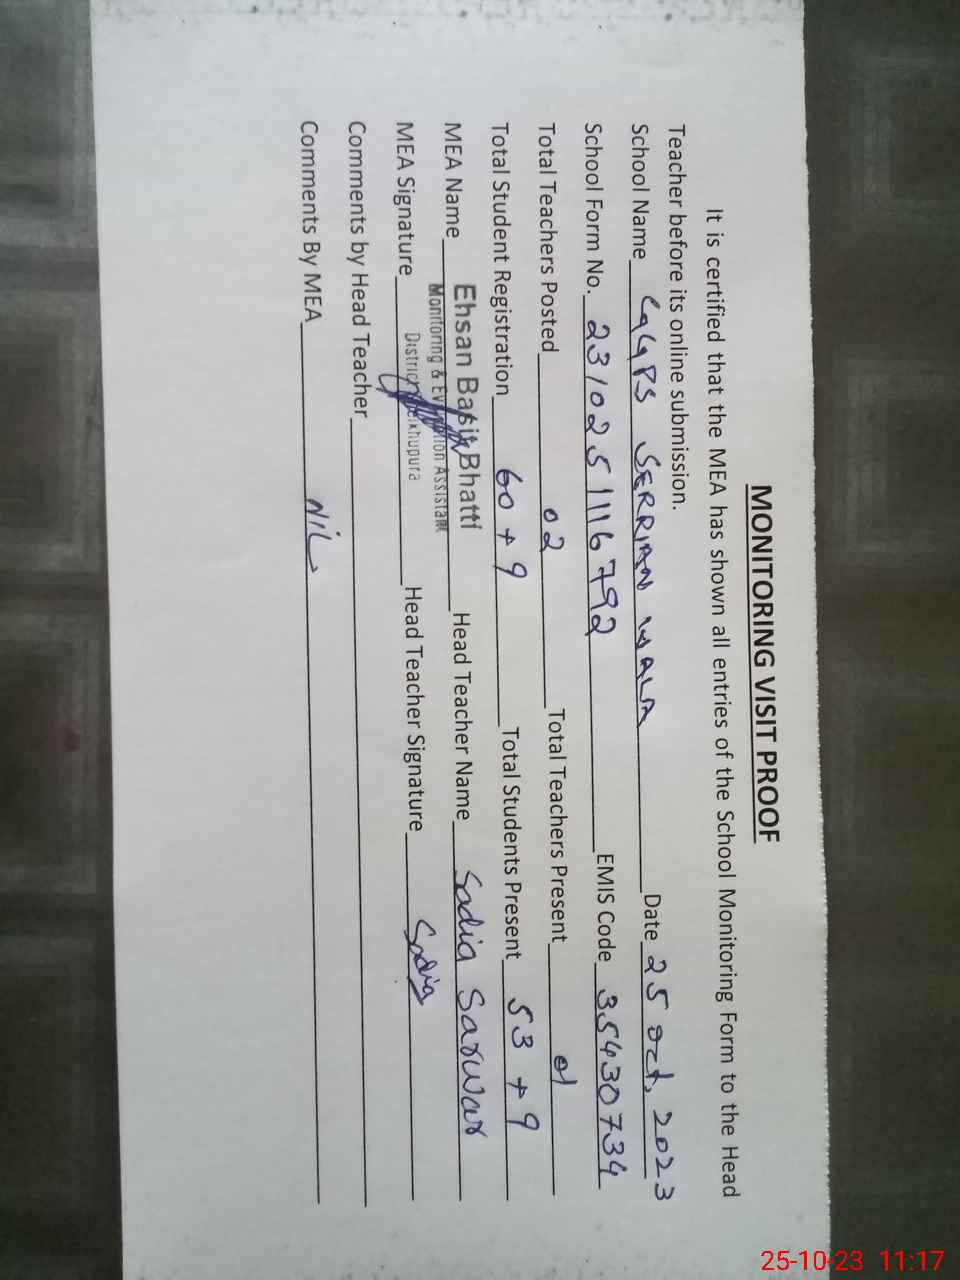 MONITORING VISIT PROOF
It is certified that the MEA has shown all entries of the School Monitoring Form to the Head
Teacher before its online submission.
School Name GGPS SERRIAN WALA Date 25 Oct, 2023
School Form No. 2310251116792 EMIS Code 35430734
Total Teachers Posted 02 Total Teachers Present 01
Total Student Registration 60 + 9 Total Students Present 53 + 9
MEA Name Ehsan Basit Bhatti Head Teacher Name Sadia Sarwar
Monitoring & Assistant
District
MEA Signature Head Teacher Signature Sadia
Comments by Head Teacher
Comments By MEA NIL
25-10-23 11:17